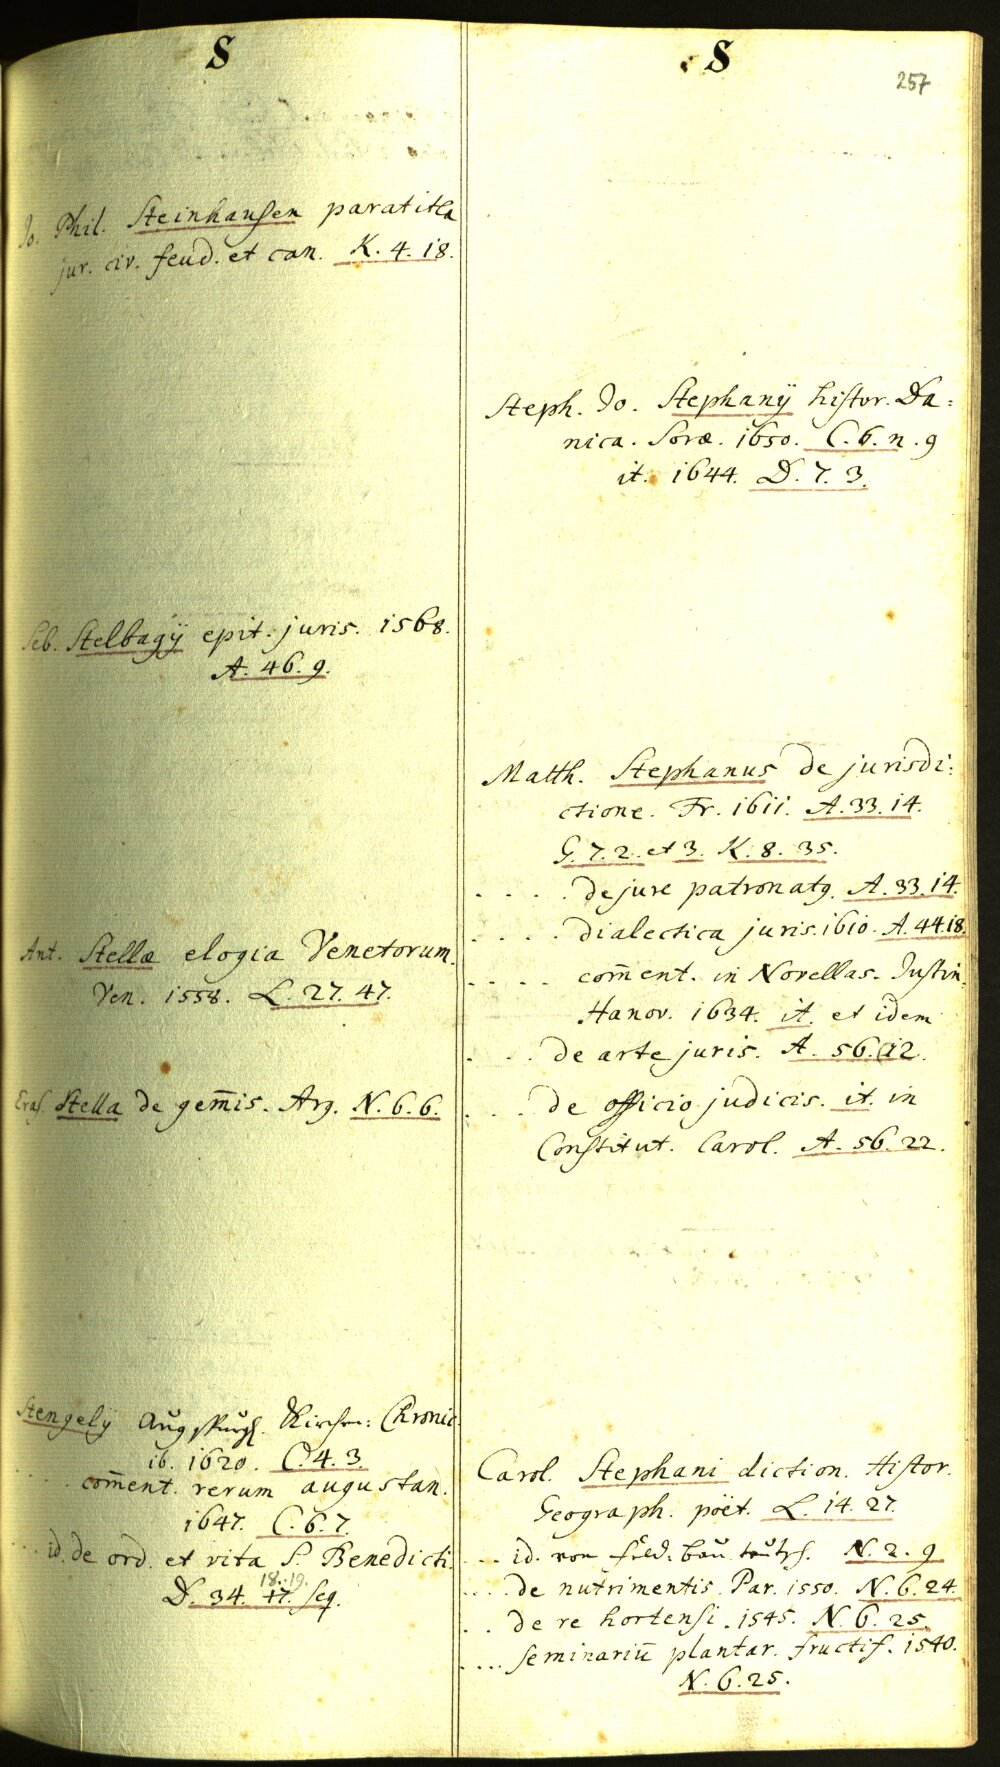 S
Jo. Phil. Steinhausen paratitla
jur. civ. feud. et can. K. 4. 18.
Seb. Stelbagÿ epit. juris. 1568.
A. 46. 9.
Ant. Stellæ elogia Venetorum.
Ven. 1558. L. 27. 47.
Eras. Stella de gem̄is. Arg. N. 6. 6.
Stengelÿ Augspurg. Kirchen: Chronic
ib. 1620. C. 4. 3.
.... com̄ent. rerum augustan.
1647. C. 6. 7.
... id. de ord. et vita S. Benedicti.
18. 19.
D. 34. 17. seq.
S
257
Steph. Jo. Stephanÿ histor. Da:
nica. Soræ. 1650. C. 6. n. 9
it. 1644. D. 7. 3.
Matth. Stephanus de jurisdi:
ctione. Fr. 1611. A. 33. 14.
G. 7. 2. et 3. K. 8. 35.
.... de jure patronatq. A. 33. 14.
.... dialectica juris. 1610. A. 44. 18.
.... com̄ent. in Novellas. Justin.
Hanov. 1634. it. et idem
... de arte juris. A. 56. 12.
.... de officio judicis. it. in
Constitut. Carol. A. 56. 22.
Carol. Stephani diction. Histor.
Geograph. pöet. L. 14. 27.
... id. von feld: bau teutsch. N. 2. 9
.... de nutrimentis. Par. 1550. N. 6. 24.
... de re hortensi. 1545. N. 6. 25.
.... seminariū plantar. fructif. 1540.
N. 6. 25.